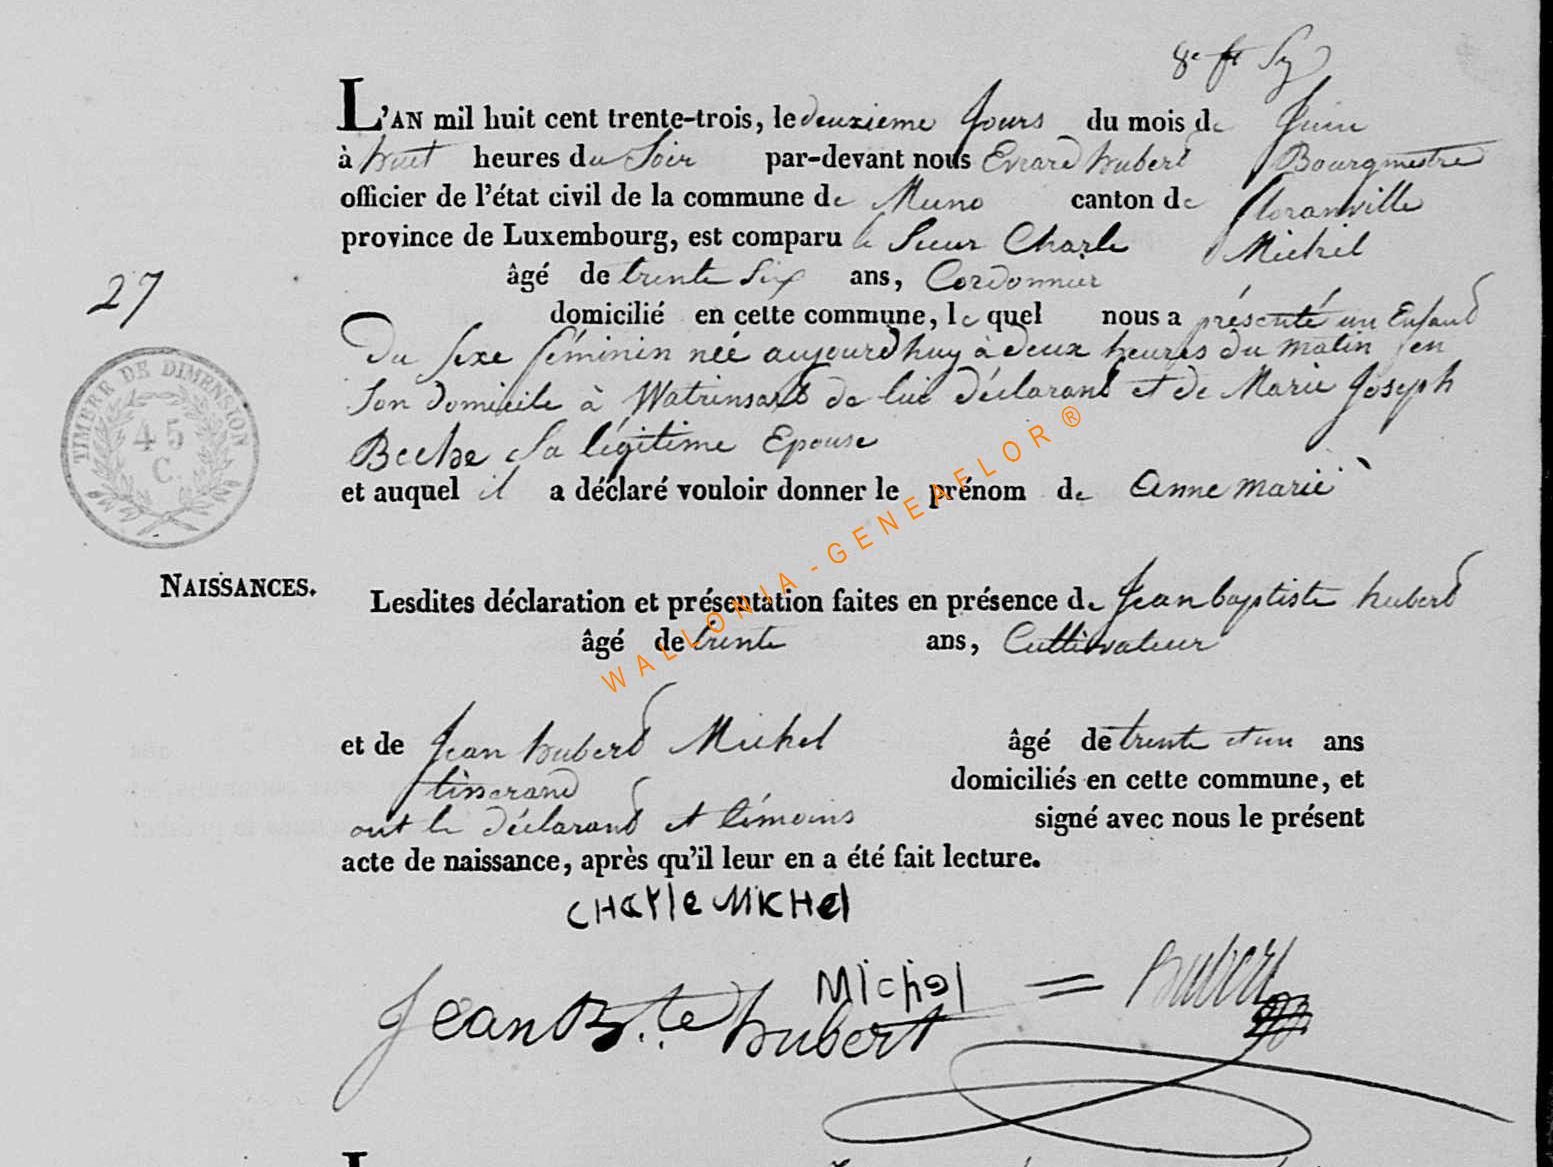 8e
L'AN mil huit cent trente-trois, le deuxieme Jours du mois de Juin
à huit heures du Soir par-devant nous Evrard hubert Bourgmestre
officier de l'état civil de la commune de Muno canton de floranville
province de Luxembourg, est comparu le Sieur Charle Michel
âgé de trente Six ans, Cordonnier
27
domicilié en cette commune, lequel nous a présenté un Enfant
Du sexe féminin née aujourdhuy à deux heures du matin en
Son domicile à Watrinsart de lui déclarant et de Marie Joseph
Beche Sa légitime Epouse
TIMBRE DE DIMENSION
45
C.
et auquel il a déclaré vouloir donner le prénom de Anne marie
NAISSANCES.
Lesdites déclaration et présentation faites en présence de Jean baptiste hubert
âgé de trente ans, Cultivateur
et de Jean hubert Michel âgé de trente et un ans
tisserand domiciliés en cette commune, et
ont le déclarant et témoins signé avec nous le présent
acte de naissance, après qu'il leur en a été fait lecture.
CHarle MICHel
Michel = hubert
Jean B.te hubert
WALLONIA-GENEAFLOR®